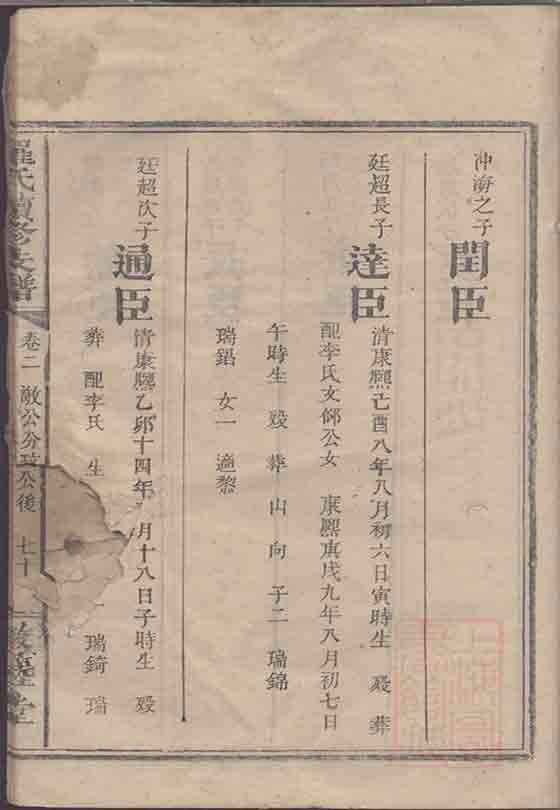 沖海之子
閏臣
廷超長子
達臣
清康熙己酉八年八月初六日寅時生 歿 葬
配李氏文㑧公女 康熙庚戌九年八月初七日
午時生 歿 葬 山 向 子二 瑞錦
瑞錩 女一 適黎
廷超次子
通臣
清康熙乙卯十四年 月十八日子時生 歿
葬 配李氏 生
瑞錡 瑞
羅氏續修支譜
卷二 敵公分 公後 七十
敦 堂